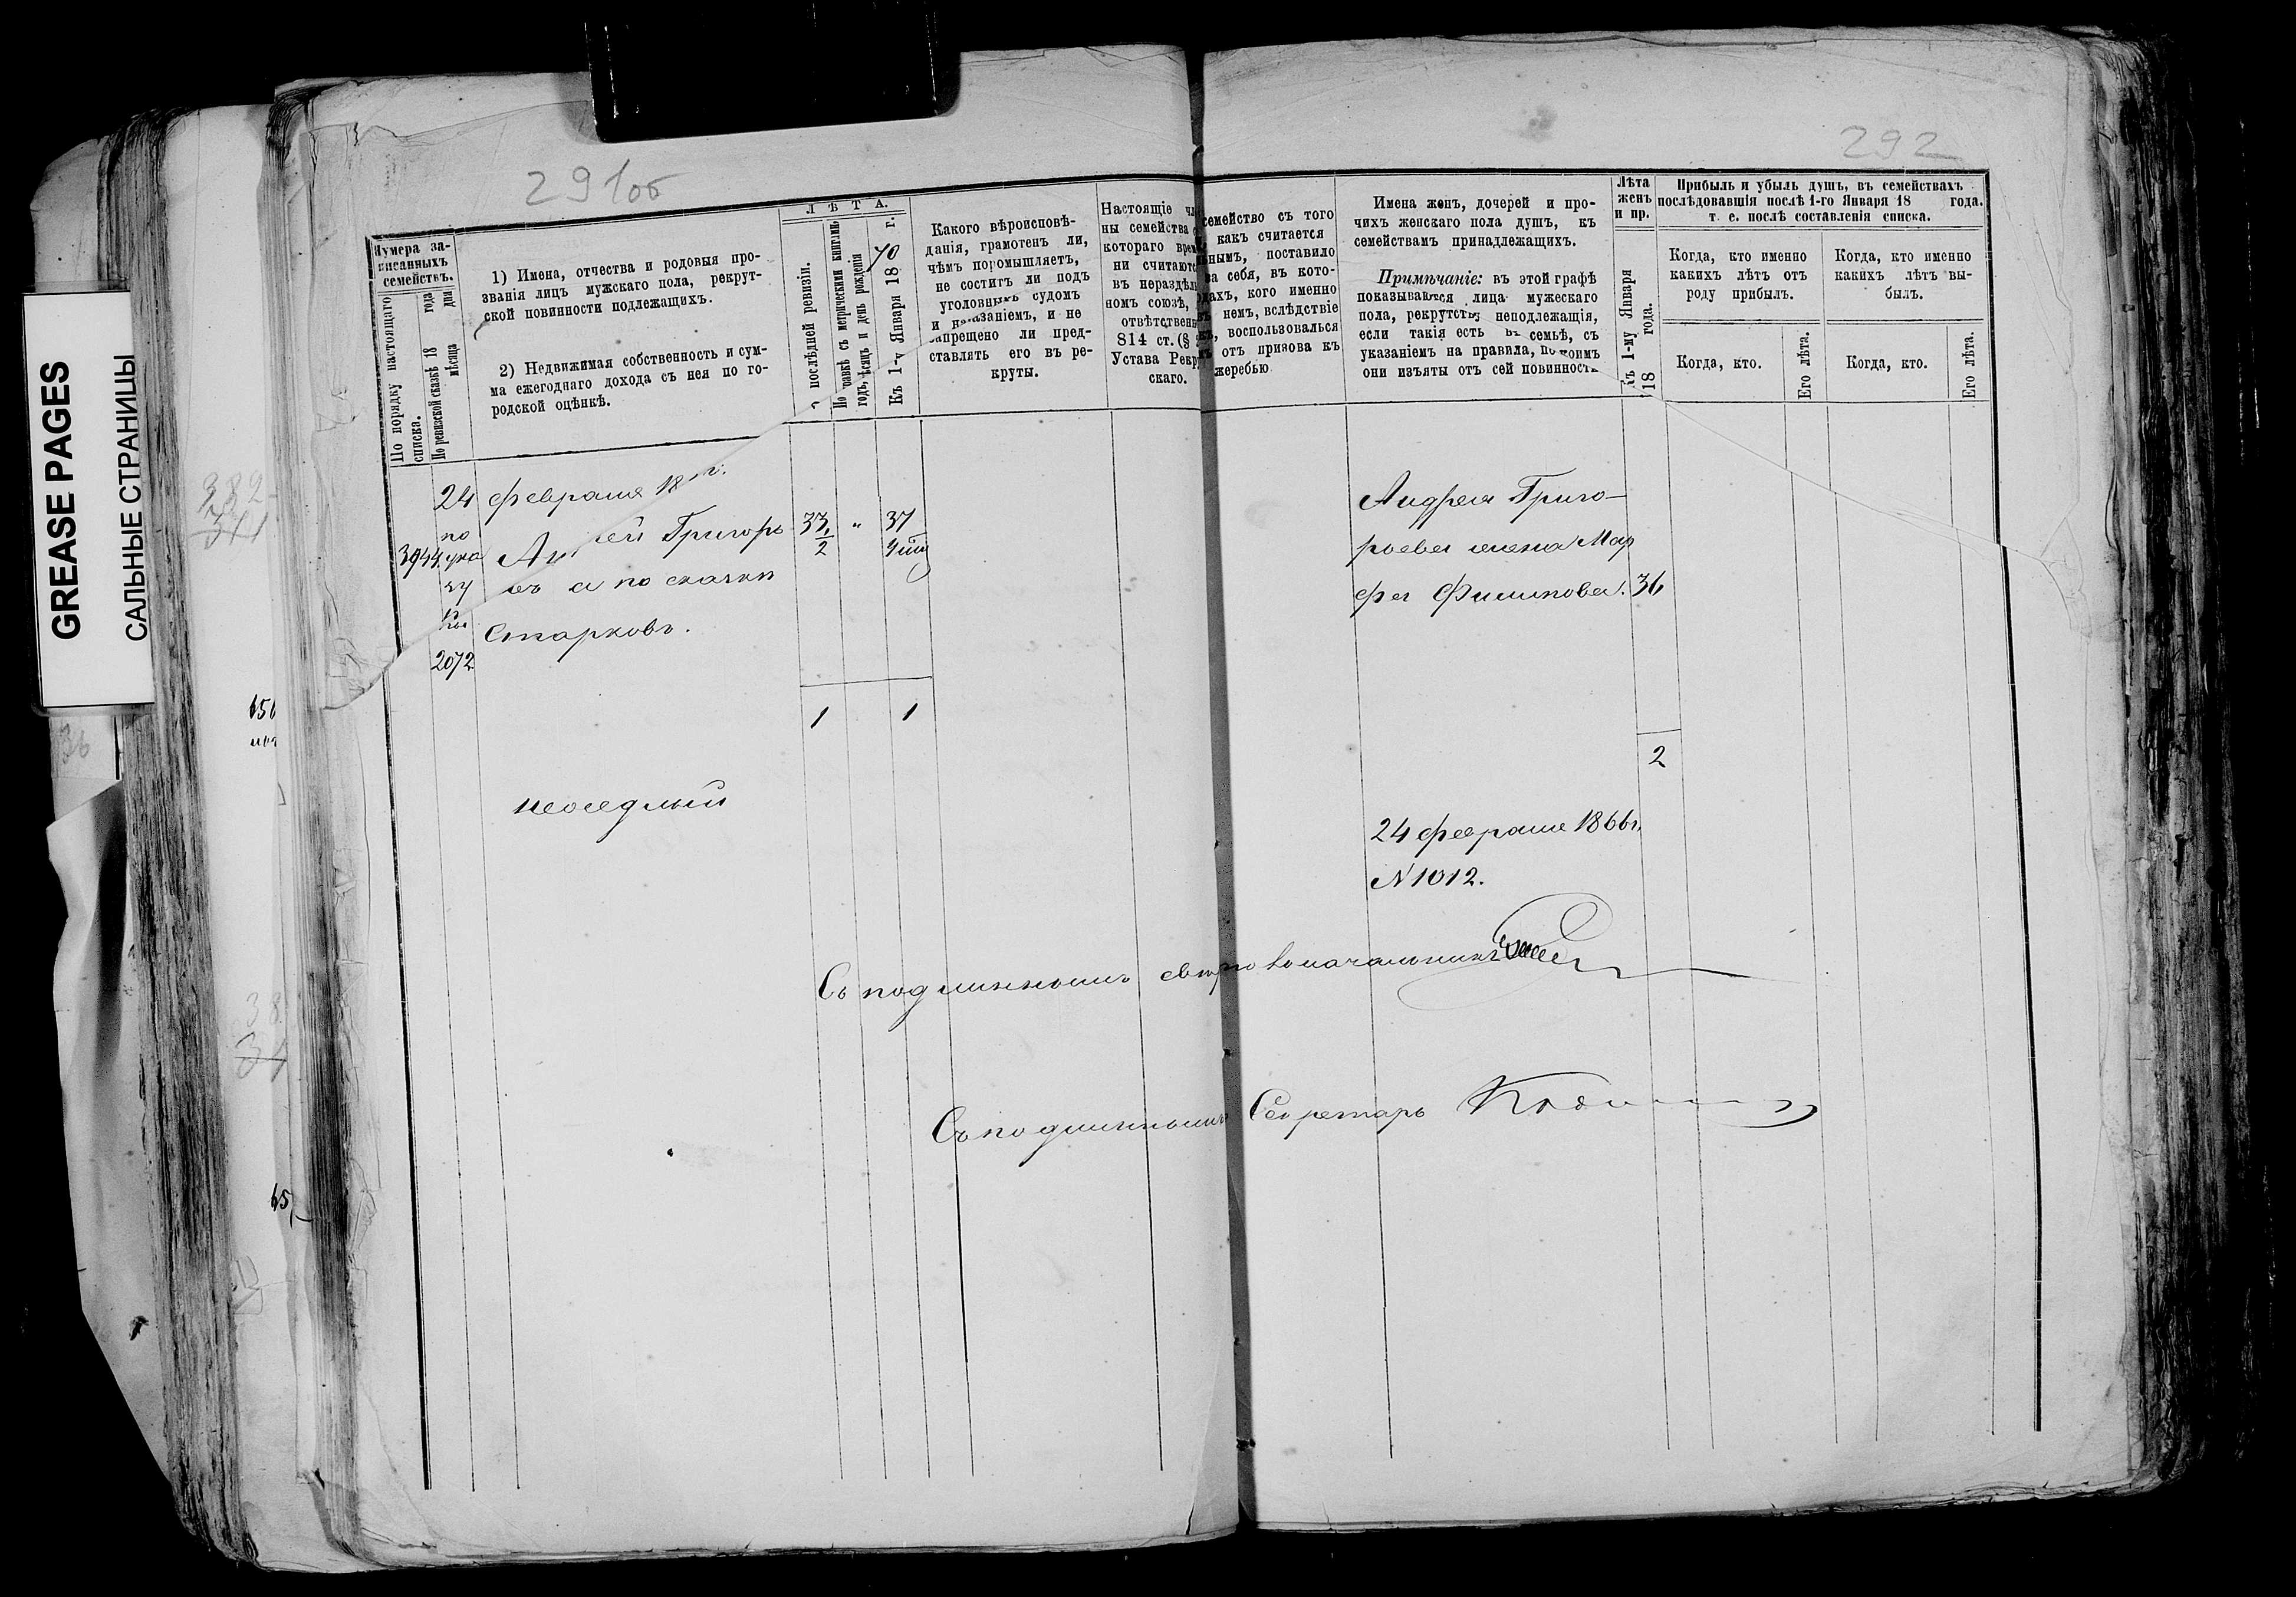 GREASE PAGES
САЛЬНЫЕ СТРАНИЦЫ
291об
292
Нумера за-
писанныхъ
семействъ.
По порядку настоящаго
списка.
По ревизской сказкѣ 18 года
мѣсяца дня
1) Имена, отчества и родовыя про-
званія лицъ мужскаго пола, рекрут-
ской повинности подлежащихъ.
2) Недвижимая собственность и сум-
ма ежегоднаго дохода съ нея по го-
родской оцѣнкѣ.
ЛѢТА.
послѣдней ревизіи.
По съ метрическими книгами
годъ, мѣсяцъ и день рожденія
Къ 1-у Января 1870 г.
Какого вѣроисповѣ-
данія, грамотенъ ли,
чѣмъ промышляетъ,
не соститъ ли подъ
уголовнымъ судомъ
и наказаніемъ, и не
запрещено ли пред-
ставлять его въ ре-
круты.
Настоящіе
ны семейства
котораго
ни
въ
номъ союзѣ,
814 ст. (§
Устава
скаго.
семейство съ того
какъ считается
поставило
за себя, въ кото-
кого именно
немъ, вслѣдствіе
воспользовался
отъ призова къ
жеребью
Имена женъ, дочерей и про-
чихъ женскаго пола душъ, къ
семействамъ принадлежащихъ.
Примѣчаніе: въ этой графѣ
показываются лица мужескаго
пола, рекрутству неподлежащія,
если такія есть въ семьѣ, съ
указаніемъ на правила, по коимъ
они изъяты отъ сей повинности
Лѣта
женъ
и пр.
Къ 1-му Января
18 года.
Прибыль и убыль душъ, въ семействахъ
послѣдовавшія послѣ 1-го Января 18 года.
т. е. послѣ составленія списка.
Когда, кто именно
какихъ лѣтъ отъ
роду прибылъ.
Когда, кто именно
какихъ лѣтъ вы-
былъ.
Когда, кто.
Его лѣта.
Когда, кто.
Его лѣта.
24 февраля 18 г.
по
ука
зу
2072
Григорь
евъ а по сказки
Старковъ.
33 1/2 " 37
1 1
неоседлый
Андрея Григо-
рьева жена Мар
фа Филипова. 36
2
24 февраля 1866 г.
N 1012.
Съ подлиннымъ вѣрно
Съ подлиннымъ Секретарь